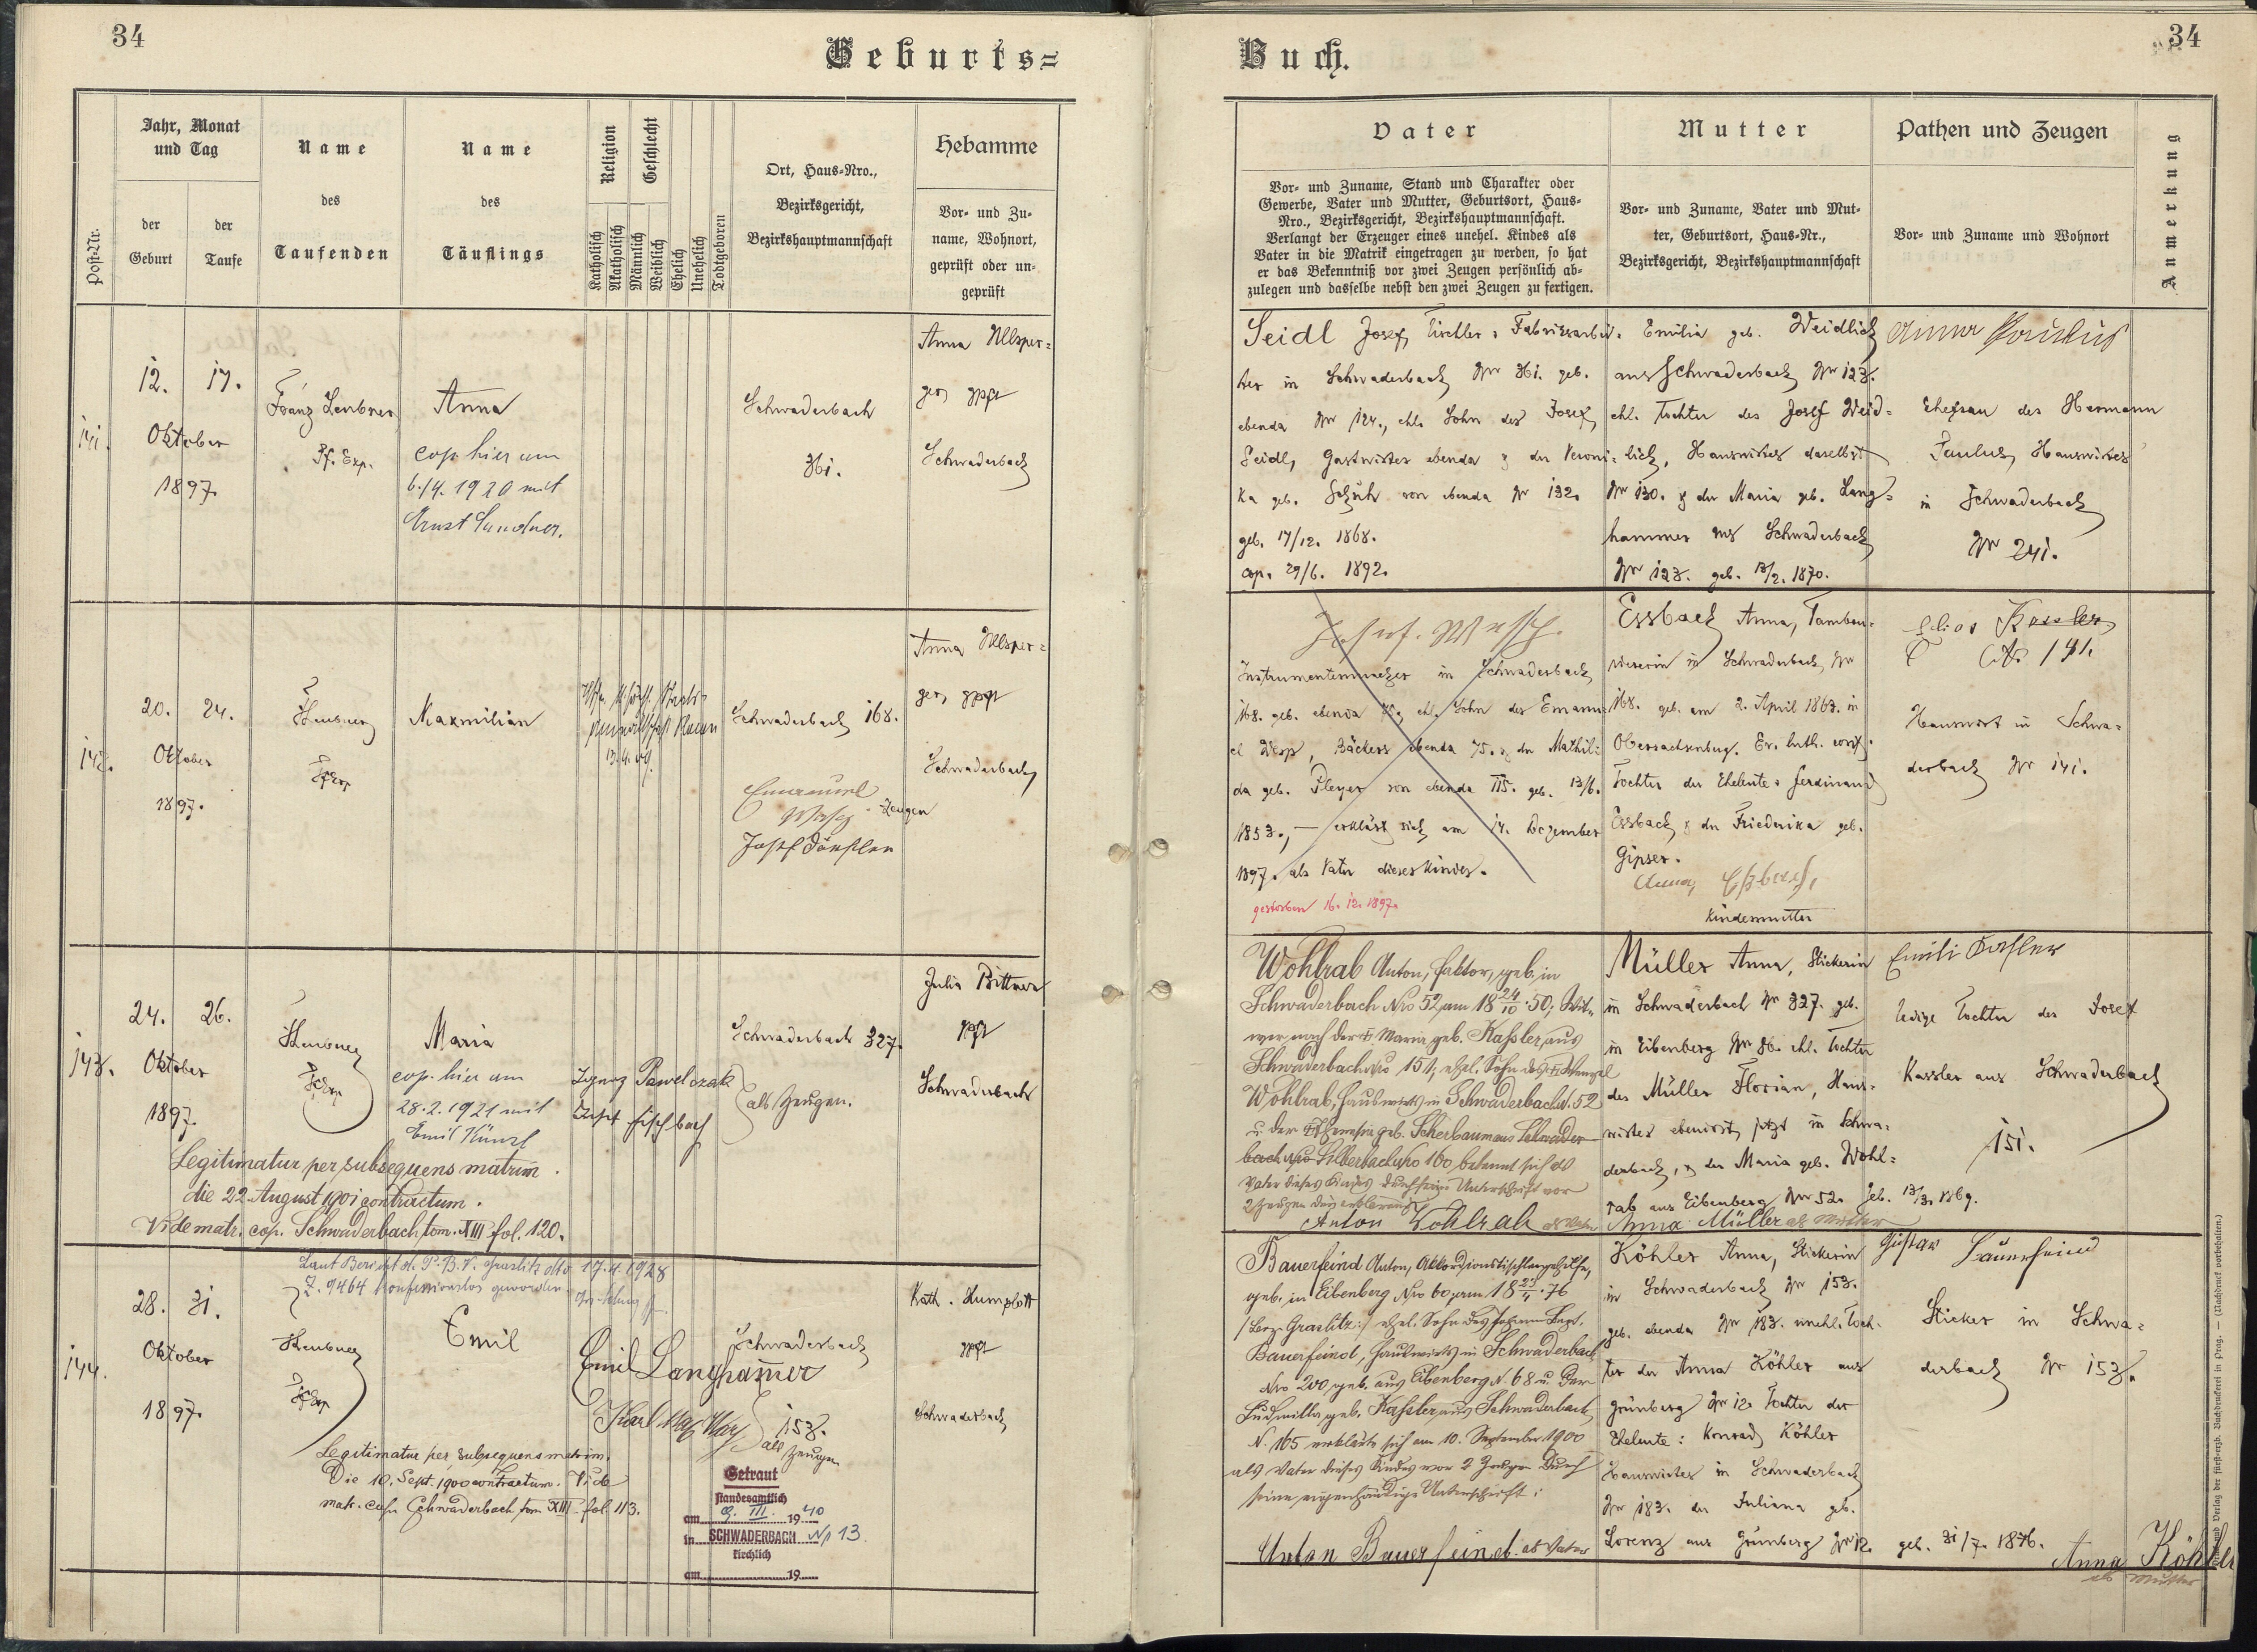 34
Geburts=
Jahr, Monat
und Tag
der
Geburt
der
Taufe
Post-Nr.
Name
des
Taufenden
Name
des
Täuflings
Religion
Geschlecht
Katholisch
Akatholisch
Männlich
Weiblich
Ehelich
Unehelich
Todtgeboren
Ort, Haus-Nro.,
Bezirksgericht,
Bezirkshauptmannschaft
Hebamme
Vor- und Zu-
name, Wohnort,
geprüft oder un-
geprüft
141.
12. 17.
Oktober
1897.
Franz
Pf. Exp.
Anna
cop. hier am
6./4. 1920 mit
Ernst Sandner.
Schwaderbach
361.
Anna Ullsper=
ger gpft
Schwaderbach
142.
20. 24.
Oktober
1897.
Maxmilian
13.4.09.
Schwaderbach 168.
Emanuel
Zeugen
Josef
Anna Ullsper=
ger gpft
Schwaderbach
143.
24. 26.
Oktober
1897.
Maria
cop. hier am
28.2.1921 mit
Emil Künzl
Ignaz Pawelczak
Josef Fischbach
als Zeugen.
Schwaderbach 327.
Julia Bittner
gpft
Schwaderbach
Legitimatur per subsequens matrim.
die 22. August 1901 contractum.
Vide matr. cop. Schwaderbach, tom. XIII fol. 120.
Laut Bericht d. P. B. V. Graslitz dto 17.4.1928
Z. 9464 konfessionslos geworden
144.
28. 31.
Oktober
1897.
Emil
Schwaderbach
Emil Langhammer
Karl
153.
als Zeugen
Kath. Humplott
gpft
Schwaderbach
Legitimatur per subsequens matrim.
Die 10. Sept. 1900 contractum. Vide
matr. cop. Schwaderbach tom XIII fol. 113.
Getraut
standesamtlich
am 9. III. 1940
in SCHWADERBACH Nr 13.
kirchlich
am 19
34
Buch.
Vater
Vor- und Zuname, Stand und Charakter oder
Gewerbe, Vater und Mutter, Geburtsort, Haus-
Nro., Bezirksgericht, Bezirkshauptmannschaft.
Verlangt der Erzeuger eines unehel. Kindes als
Vater in die Matrik eingetragen zu werden, so hat
er das Bekenntniß vor zwei Zeugen persönlich ab-
zulegen und dasselbe nebst den zwei Zeugen zu fertigen.
Mutter
Vor- und Zuname, Vater und Mut-
ter, Geburtsort, Haus-Nr.,
Bezirksgericht, Bezirkshauptmannschaft
Pathen und Zeugen
Vor- und Zuname und Wohnort
Anmerkung
Seidl Josef, Tischler, Fabriksarbei-
ter in Schwaderbach Nr 361. geb.
ebenda Nr 124., ehl. Sohn des Josef
Seidl, Gastwirtes ebenda & der Veroni-
ka geb. Schuh von ebenda Nr 132.
geb. 17/12. 1868.
cop. 29/6. 1892.
Emilia geb. Weidlich
aus Schwaderbach Nr 123.
ehl. Tochter des Josef Weid=
lich, Hauswirtes daselbst
Nr 130. & der Maria geb. Lang=
hammer aus Schwaderbach
Nr 123. geb. 13/2. 1870.
Anna Paulus
Ehefrau des Hermann
Paulus, Hauswirtes
in Schwaderbach
Nr 241.
Instrumentenmacher in Schwaderbach
168. geb. ebenda 75, ehl. Sohn des Emanu-
el, Bäckers ebenda 75. & der Mathil-
da geb. Pleyer von ebenda 115. geb. 13/6.
1853., — erklärt sich am 14. Dezember
1897. als Vater dieses Kindes.
gestorben 16. 12. 1897.
Essbach Anna, Tambou-
rierin in Schwaderbach Nr
168. geb. am 2. April 1863. in
Obersachsenberg. Ev. luth. conf.
Tochter der Eheleute: Ferdinand
Essbach & der Friederika geb.
Gipser.
Anna Eßbach,
Kindesmutter
Kassler
No 141.
Hauswirt in Schwa=
derbach Nr 141.
Wohlrab Anton, Faktor, geb. in
Schwaderbach Nro 52, am 18 24/10 50; Wit-
wer nach der † Maria geb. Kaßler, aus
Schwaderbach Nro 151, ehel. Sohn des † Wenzel
Wohlrab, Hauswirts in Schwaderbach N. 52
u. der † Theresia geb. Scherbaum aus Schwader-
bach Nro Silberbach Nro 160, bekennt sich als
Vater dieses Kindes durch seine Unterschrift vor
Anton Wohlrab als Vater
Müller Anna, Stickerin
in Schwaderbach Nr 327. geb.
in Eibenberg Nr 86. ehl. Tochter
des Müller Florian, Haus-
wirtes ebendort, jetzt in Schwa-
derbach, & der Maria geb. Wohl=
rab aus Eibenberg Nr 52. geb. 13/3. 1869.
Anna Müller als Mutter
Emili Kaßler
ledige Tochter des Josef
Kassler aus Schwaderbach
151.
Bauerfeind Anton, Akkordionstischlergehilfe,
geb. in Eibenberg Nro 60, am 18 25/4 76
/Bez. Graslitz:/ ehel. Sohn des Johann Bapt.
Bauerfeind, Hauswirts in Schwaderbach
Nro 200, geb. aus Eibenberg N. 68 u. der
Ludmilla geb. Kaßler, aus Schwaderbach
N. 165 erklärte sich am 10. September 1900
als Vater dieses Kindes vor 2 Zeugen durch
seine eigenhändige Unterschrift:
Anton Bauerfeind. als Vater
Köhler Anna, Stickerin
in Schwaderbach Nr 153.
geb. ebenda Nr 183. unehl. Toch-
ter der Anna Köhler aus
Grünberg Nr 12. Tochter der
Eheleute: Konrad Köhler
Hauswirtes in Schwaderbach
Nr 183. der Juliana geb.
Lorenz aus Grünberg Nr 12. geb. 31/7. 1876.
Anna Köhler
als Mutter
Gustav Bauerfeind
Sticker in Schwa=
derbach Nr 153.
Verlag der fürsterzb. Buchdruckerei in Prag. — (Nachdruck vorbehalten.)